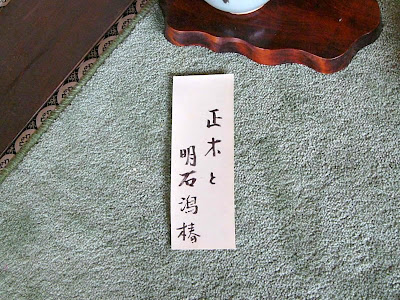 正木と
明石潟椿